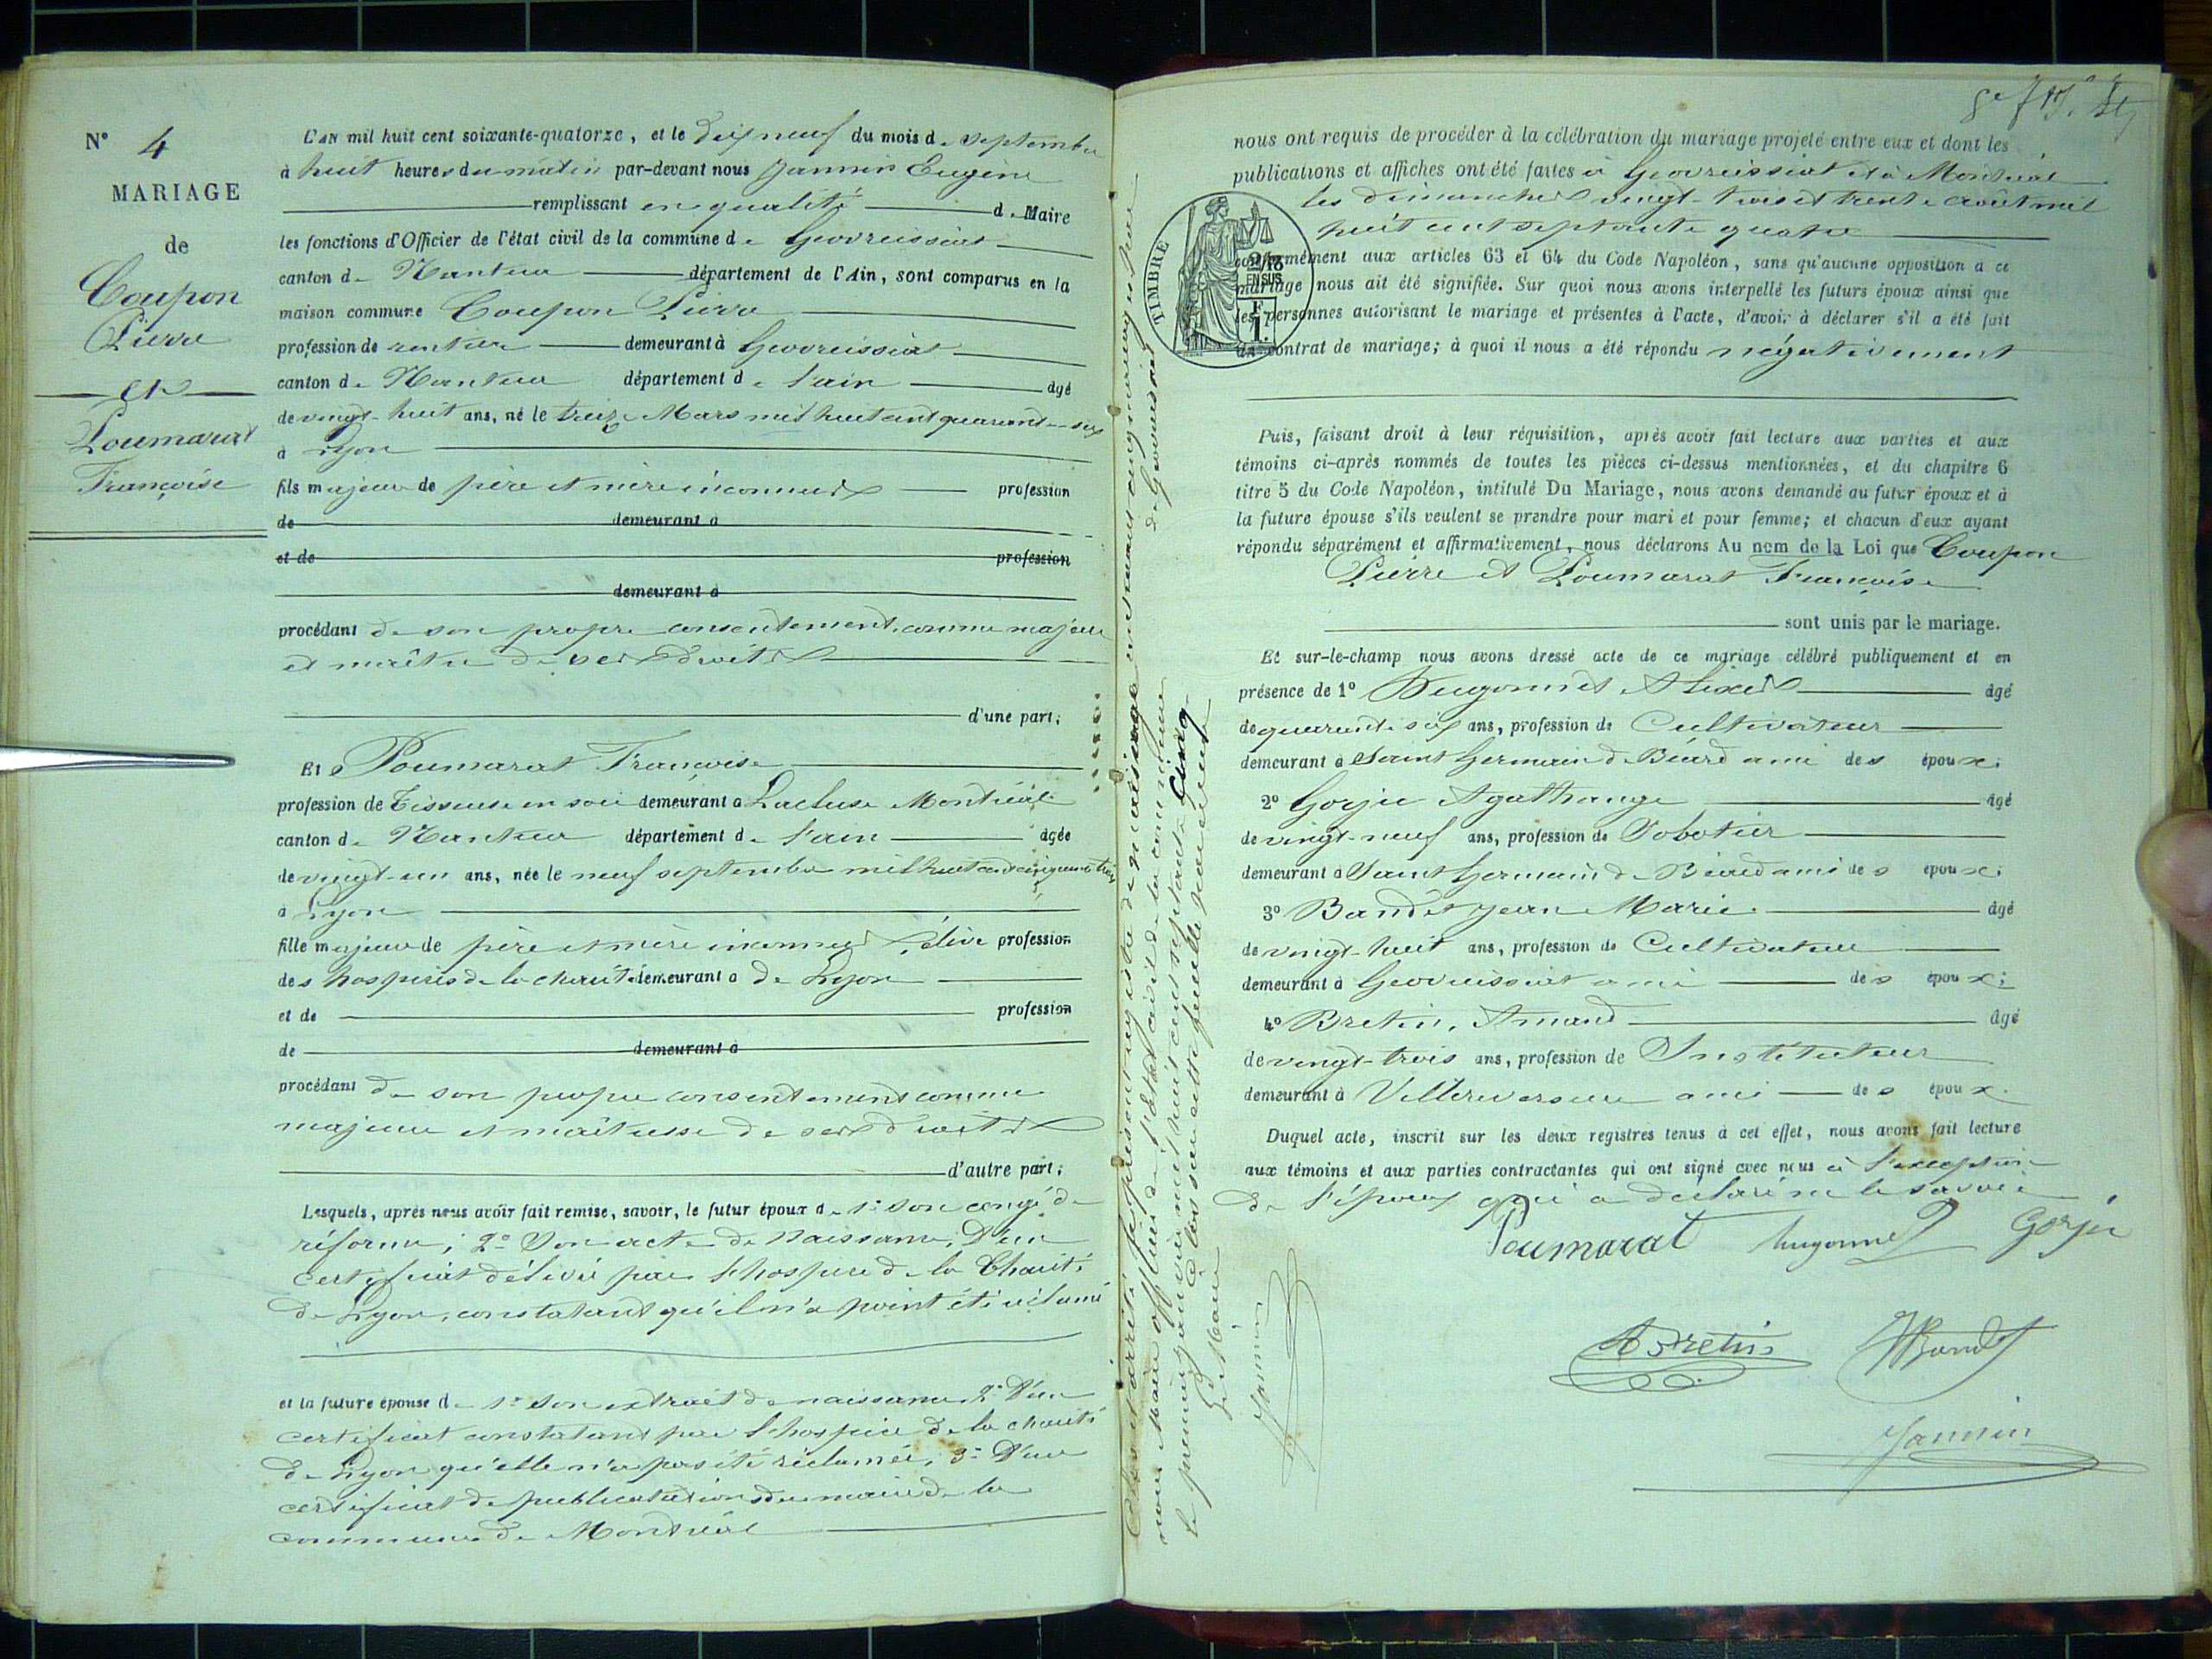 N° 4
MARIAGE
de
Coupon
Pierre
et
Poumarat
Françoise
L'AN mil huit cent soixante-quatorze, et le dix neuf du mois de septembre
à huit heures du matin par-devant nous Jannin Eugène
remplissant en qualité de Maire
les fonctions d'Officier de l'état civil de la commune de Géovreissiat
canton de Nantua département de l'Ain, sont comparus en la
maison commune Coupon Pierre
profession de rentier demeurant à Géovreissiat
canton de Nantua département de l'ain âgé
de vingt-huit ans, né le treize Mars mil huit cent quarante-six
à Lyon
fils majeur de père et mère inconnus profession
de demeurant à
et de profession
demeurant à
procédant de son propre consentement, comme majeur
et maître de ses droits
d'une part;
Et Poumarat Françoise
profession de Tisseuse en soie demeurant à Lacluse Montréal
canton de Nantua département de l'ain âgée
de vingt-un ans, née le neuf septembre mil huit cent cinquante trois
à Lyon
fille majeure de père et mère inconnus, élève profession
des hospices de la charité demeurant à de Lyon
et de profession
de demeurant à
procédant de son propre consentement comme
majeure et maîtresse de ses droits
d'autre part;
Lesquels, après nous avoir fait remise, savoir, le futur époux de 1° son congé de
réforme; 2° Son acte de Naissance, D'un
certificat délivré par l'hospice de la Charité
de Lyon, constatant qu'il n'a point été réclamé
et la future épouse de 1° son extrait de naissance 2° D'un
certificat constatant par l'hospice de la charité
de Lyon qu'elle n'a pas été réclamée, 3° D'un
certificat de publications du maire de la
commune de Montréal
Clos et arrêté le présent registre de mariage
nous Maire officier de l'état civil de la commune
de Géovreissiat
le premier janvier mil huit cent septante cinq
Le Maire
Jannin
nous ont requis de procéder à la célébration du mariage projeté entre eux et dont les
publications et affiches ont été faites à Géovreissiat et à Montréal
les dimanches vingt-trois et trente août mil
huit cent septante quatre
TIMBRE
2/10
EN SUS
F
1.
conformément aux articles 63 et 64 du Code Napoléon, sans qu'aucune opposition à ce
mariage nous ait été signifiée. Sur quoi nous avons interpellé les futurs époux ainsi que
les personnes autorisant le mariage et présentes à l'acte, d'avoir à déclarer s'il a été fait
un contrat de mariage; à quoi il nous a été répondu négativement
Puis, faisant droit à leur réquisition, après avoir fait lecture aux parties et aux
témoins ci-après nommés de toutes les pièces ci-dessus mentionnées, et du chapitre 6
titre 5 du Code Napoléon, intitulé Du Mariage, nous avons demandé au futur époux et à
la future épouse s'ils veulent se prendre pour mari et pour femme; et chacun d'eux ayant
répondu séparément et affirmativement, nous déclarons Au nom de la Loi que Coupon
Pierre et Poumarat Françoise
sont unis par le mariage.
Et sur-le-champ nous avons dressé acte de ce mariage célébré publiquement et en
présence de 1° Hugonnet Alexis âgé
de quarante six ans, profession de Cultivateur
demeurant à Saint Germain de Béard ami des époux;
2° Gorju Agathange âgé
de vingt-neuf ans, profession de Sabotier
demeurant à Saint Germain de Béard ami des époux;
3° Bandet Jean Marie âgé
de vingt-huit ans, profession de Cultivateur
demeurant à Géovreissiat ami des époux;
4° Bretin, Amand âgé
de vingt-trois ans, profession de Instituteur
demeurant à Villereversure ami des époux.
Duquel acte, inscrit sur les deux registres tenus à cet effet, nous avons fait lecture
aux témoins et aux parties contractantes qui ont signé avec nous à l'exception
de l'époux qui a déclaré ne le savoir
Poumarat hugonnet Gorju
A Bretin JBandet
Jannin